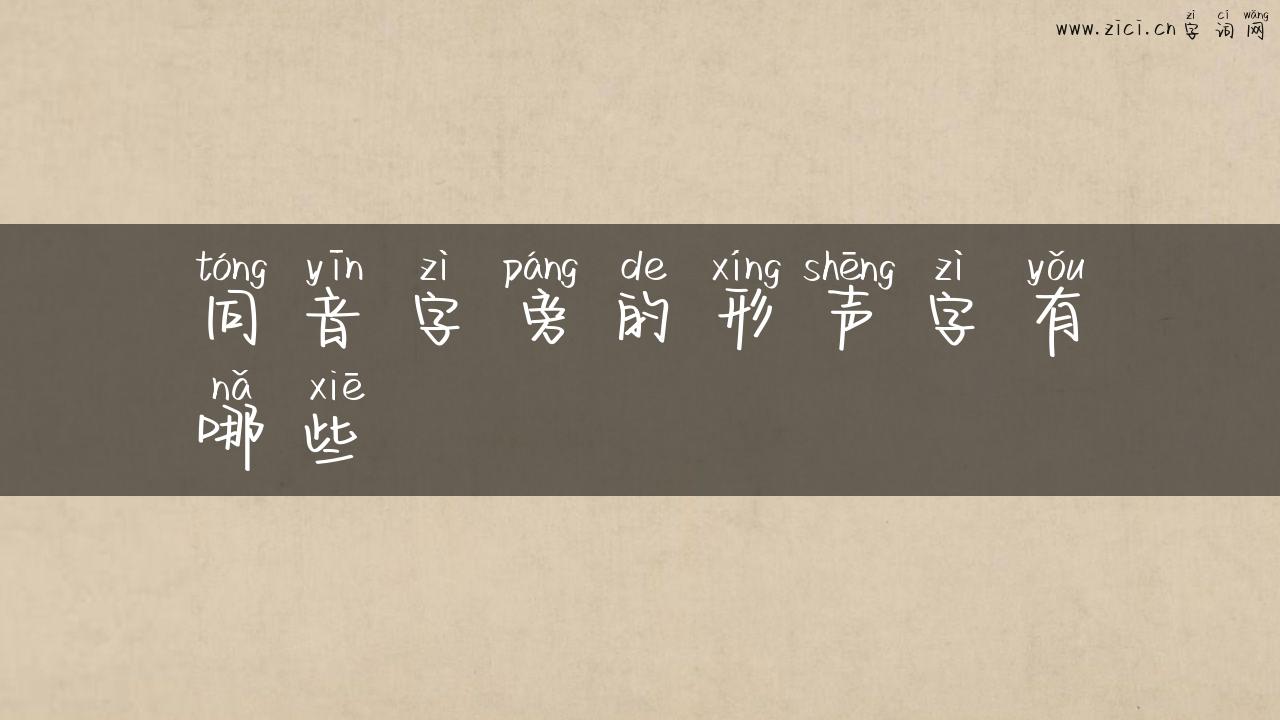 www.zici.cn 字词网
zì cí wǎng
tóng yīn zì páng de xíng shēng zì yǒu
同音字旁的形声字有
nǎ xiē
哪些